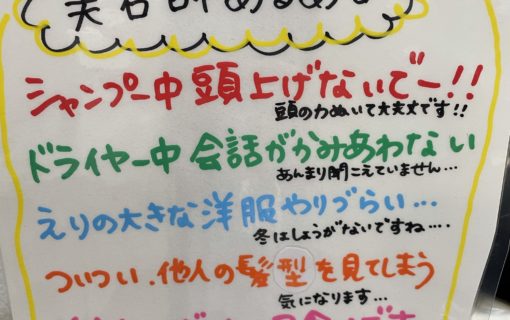 美容師あるある
シャンプー中 頭上げないでー!!
頭の力ぬいて大丈夫です!!
ドライヤー中 会話がかみあわない
あんまり聞こえていません…
えりの大きな洋服やりづらい…
冬はしょうがないですね….
ついつい、他人の髪型を見てしまう
気になります…